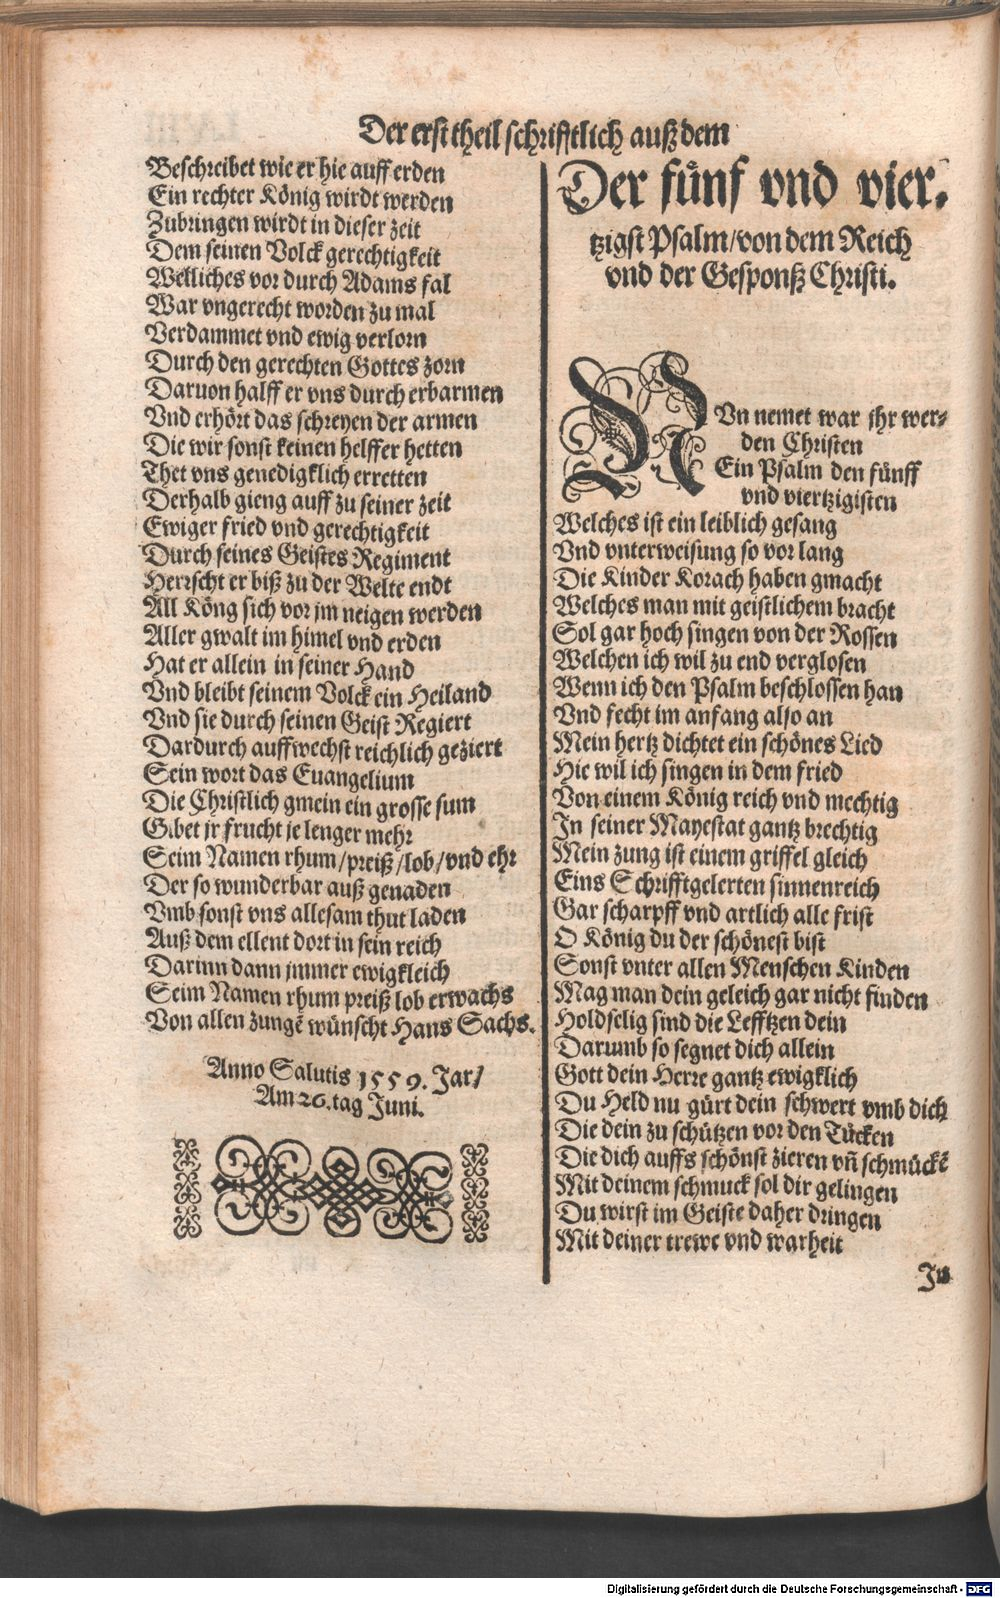 Der erst theil schrifftlich auß dem
Beschreibet wie er hie auff erden
Ein rechter König wirdt werden
Zubringen wirdt in dieser zeit
Dem seinen Volck gerechtigkeit
Welliches vor durch Adams fal
War vngerecht worden zu mal
Verdammet vnd ewig verlorn
Durch den gerechten Gottes zorn
Daruon halff er vns durch erbarmen
Vnd erhört das schreyen der armen
Die wir sonst keinen helffer hetten
Thet vns genedigklich erretten
Derhalb gieng auff zu seiner zeit
Ewiger fried vnd gerechtigkeit
Durch seines Geistes Regiment
Herrscht er biß zu der Welte endt
All Köng sich vor jm neigen werden
Aller gwalt im himel vnd erden
Hat er allein in seiner Hand
Vnd bleibt seinem Volck ein Heiland
Vnd sie durch seinen Geist Regiert
Dardurch auffwechst reichlich geziert
Sein wort das Euangelium
Die Christlich gmein ein grosse sum
Gibet jr frucht je lenger mehr
Seim Namen rhum/preiß/lob/vnd ehr
Der so wunderbar auß genaden
Vmb sonst vns allesam thut laden
Auß dem ellent dort in sein reich
Darinn dann jmmer ewigkleich
Seim Namen rhum preiß lob erwachs
Von allen zungē wünscht Hans Sachs.
Anno Salutis 1559. Jar/
Am 26. tag Juni.
Der fünf vnd vier-
tzigst Psalm/von dem Reich
vnd der Gesponß Christi.
NVn nemet war jhr wer-
den Christen
Ein Psalm den fünff
vnd viertzigisten
Welches ist ein leiblich gesang
Vnd vnterweisung so vor lang
Die Kinder Korach haben gmacht
Welches man mit geistlichem bracht
Sol gar hoch singen von der Rossen
Welchen ich wil zu end verglosen
Wenn ich den Psalm beschlossen han
Vnd fecht im anfang also an
Mein hertz dichtet ein schönes Lied
Hie wil ich singen in dem fried
Von einem König reich vnd mechtig
In seiner Mayestat gantz brechtig
Mein zung ist einem griffel gleich
Eins Schrifftgelerten sinnenreich
Gar scharpff vnd artlich alle frist
O König du der schönest bist
Sonst vnter allen Menschen Kinden
Mag man dein geleich gar nicht finden
Holdselig sind die Lefftzen dein
Darumb so segnet dich allein
Gott dein Herre gantz ewigklich
Du Held nu gürt dein schwert vmb dich
Die dein zu schützen vor den Tücken
Die dich auffs schönst zieren vñ schmückē
Mit deinem schmuck sol dir gelingen
Du wirst im Geiste daher dringen
Mit deiner trewe vnd warheit
In
Digitalisierung gefördert durch die Deutsche Forschungsgemeinschaft - DFG